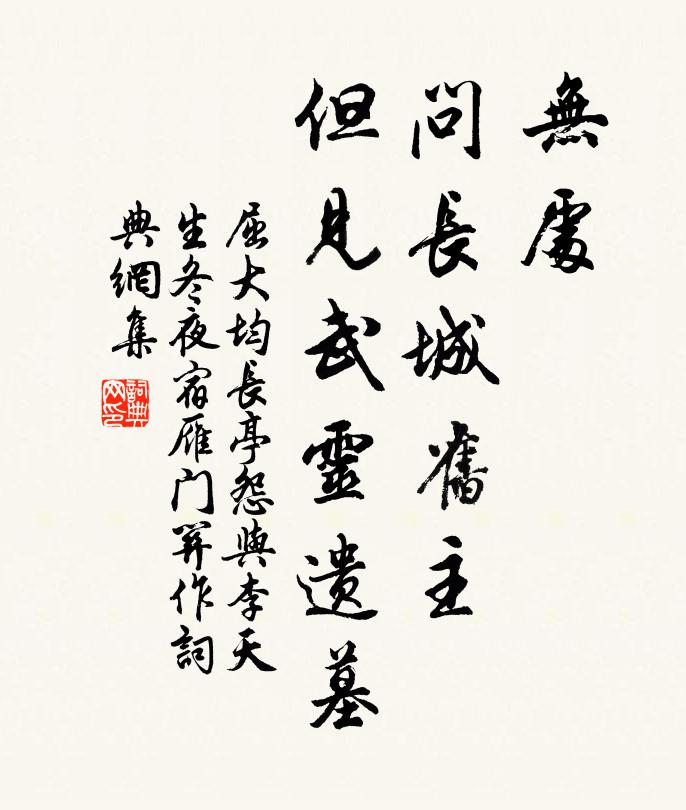 無處
問長城舊主
但見武靈遺墓
屈大均長亭怨與李天
生冬夜宿雁门關作詞
典網集
詞典
网印